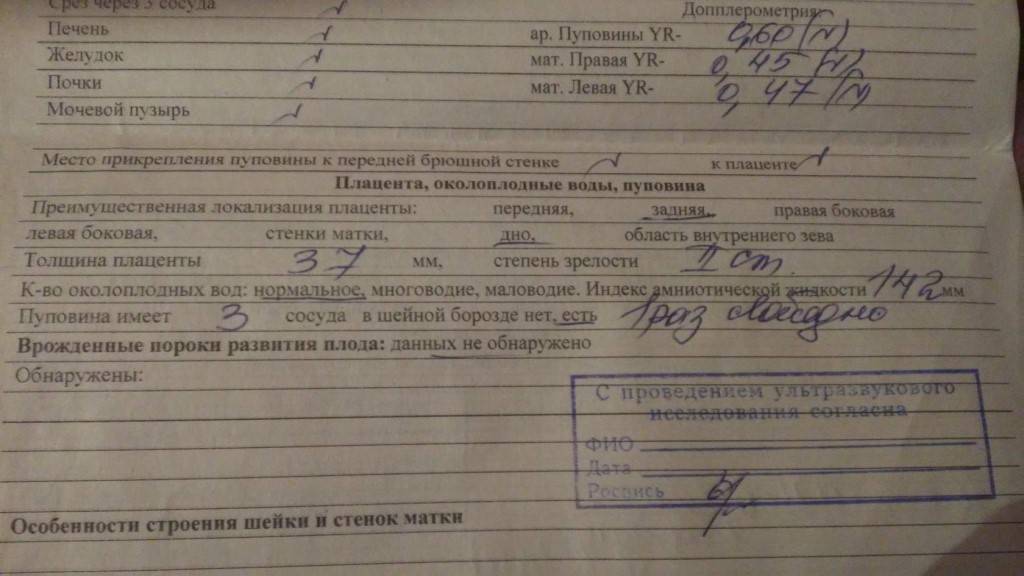 Срез через 3 сосуда
Допплерометрия:
Печень ар. Пуповины YR- 0,60 (N)
Желудок мат. Правая YR- 0,45 (N)
Почки мат. Левая YR- 0,47 (N)
Мочевой пузырь
Место прикрепления пуповины к передней брюшной стенке к плаценте
Плацента, околоплодные воды, пуповина
Преимущественная локализация плаценты: передняя, задняя, правая боковая
левая боковая, стенки матки, дно, область внутреннего зева
Толщина плаценты 37 мм, степень зрелости II ст.
К-во околоплодных вод: нормальное, многоводие, маловодие. Индекс амниотической жидкости 142 мм
Пуповина имеет 3 сосуда в шейной борозде нет, есть 1 раз свободно
Врожденные пороки развития плода: данных не обнаружено
Обнаружены:
С проведением ультразвукового
исследования согласна
ФИО
Дата
Роспись
Особенности строения шейки и стенок матки